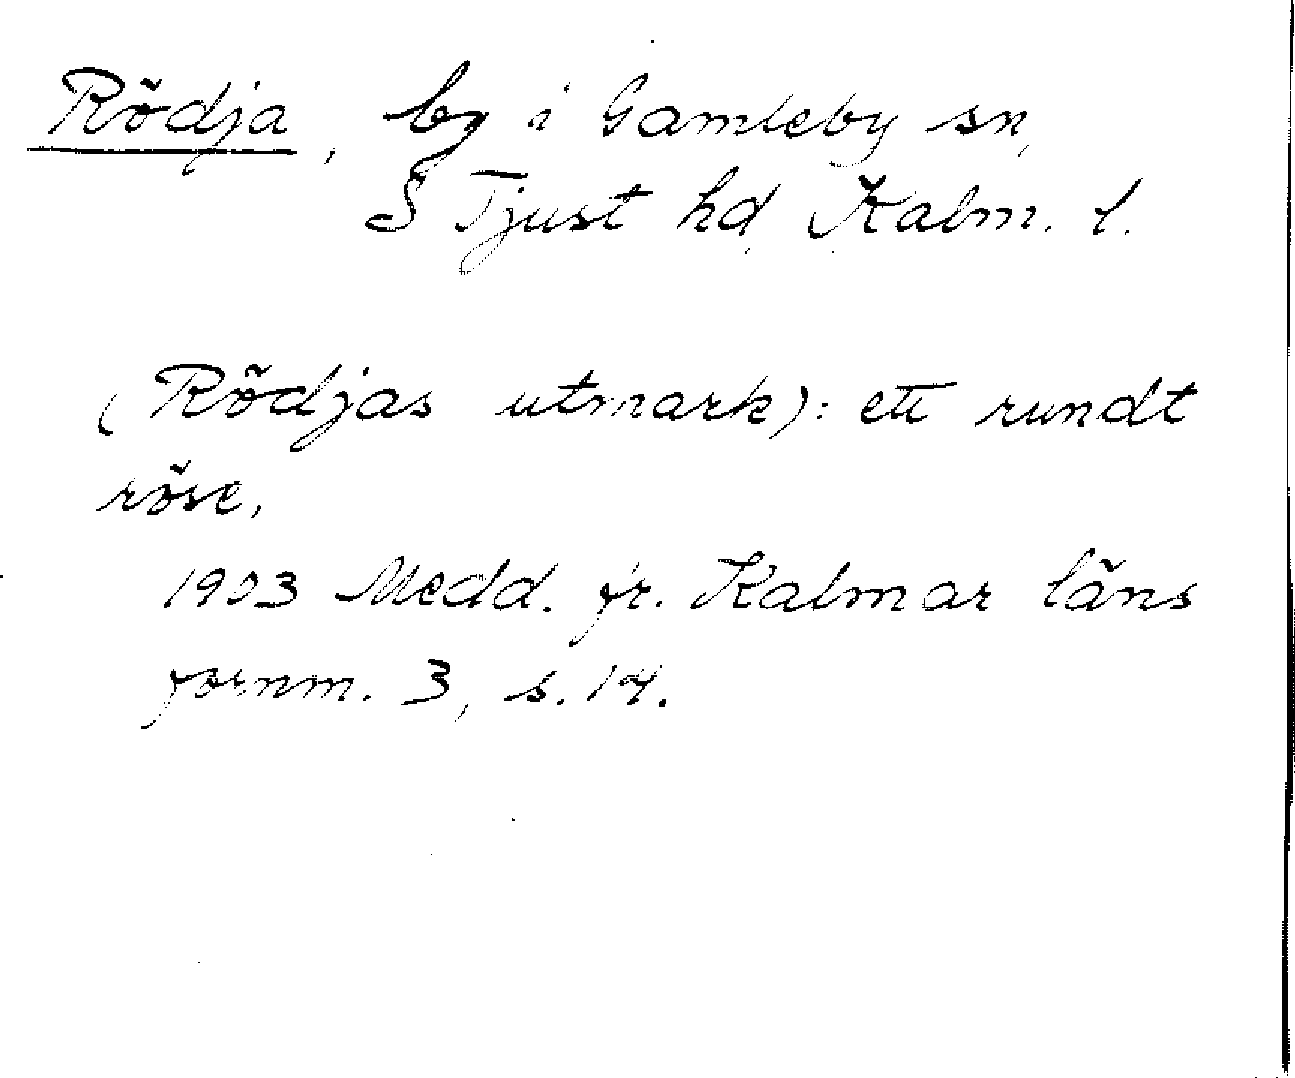 Rödja, by i Gamleby sn,
S Tjust hd, Kalm. l.
(Rödjas utmark): ett rundt
röse.
1903 Medd. fr. Kalmar läns
fornm. 3, s. 14.